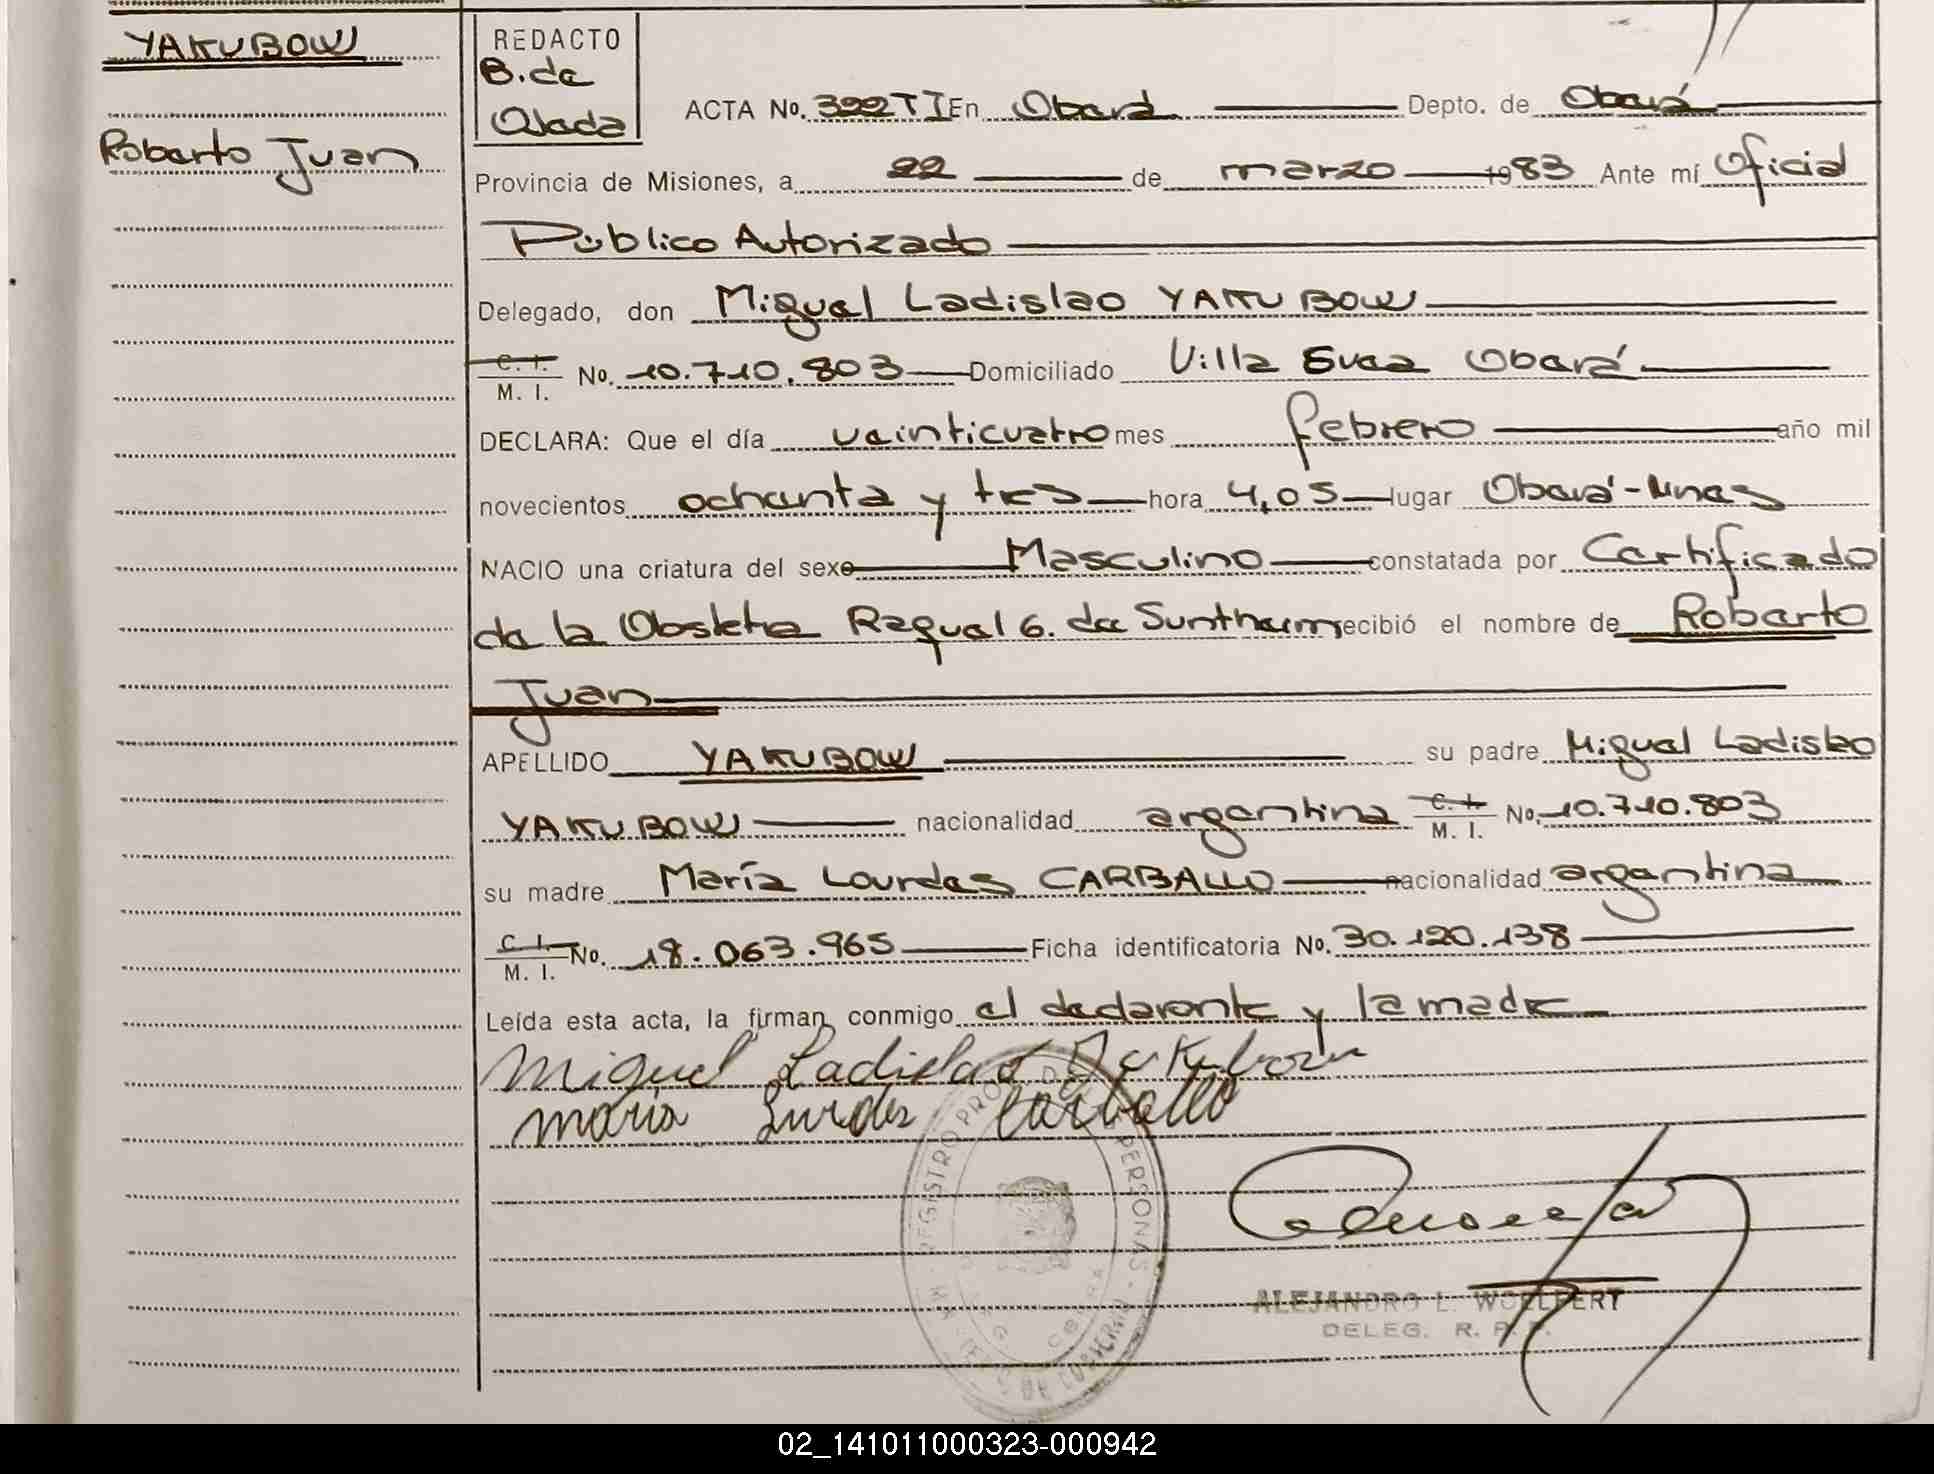 YAKUBOW
Roberto Juan
REDACTO
B. de
Ojeda
ACTA No. 322 T I En Oberá Depto. de Oberá
Provincia de Misiones, a 22 de marzo 1983 Ante mí Oficial
Público Autorizado
Delegado, don Miguel Ladislao YAKUBOW
C. I. / M. I. No. 10.710.803 Domiciliado Villa Svea Oberá
DECLARA: Que el día veinticuatro mes febrero año mil
novecientos ochenta y tres hora 4,05 lugar Oberá-Mnes
NACIO una criatura del sexo Masculino constatada por Certificado
de la Obstetra Raquel G. de Suntheim recibió el nombre de Roberto
Juan
APELLIDO YAKUBOW su padre Miguel Ladislao
YAKUBOW nacionalidad argentina C. I. / M. I. No. 10.710.803
su madre María Lourdes CARBALLO nacionalidad argentina
C. I. / M. I. No. 18.063.965 Ficha identificatoria No. 30.120.138
Leída esta acta, la firman conmigo el declarante y la madre
Miguel Ladislao Yakubow
María Lurdes Carballo
REGISTRO PROV. DE PERSONAS
ALEJANDRO L. WOELFERT
DELEG. R. P. P.
02_141011000323-000942